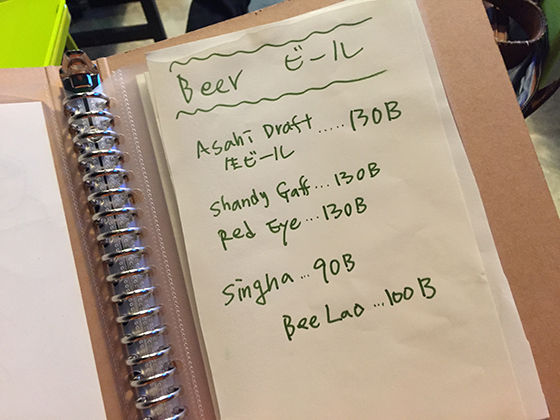 Beer ビール
Asahi Draft ..... 130B
生ビール
Shandy Gaff ... 130B
Red Eye ... 130B
Singha ... 90B
Bee Lao ... 100B